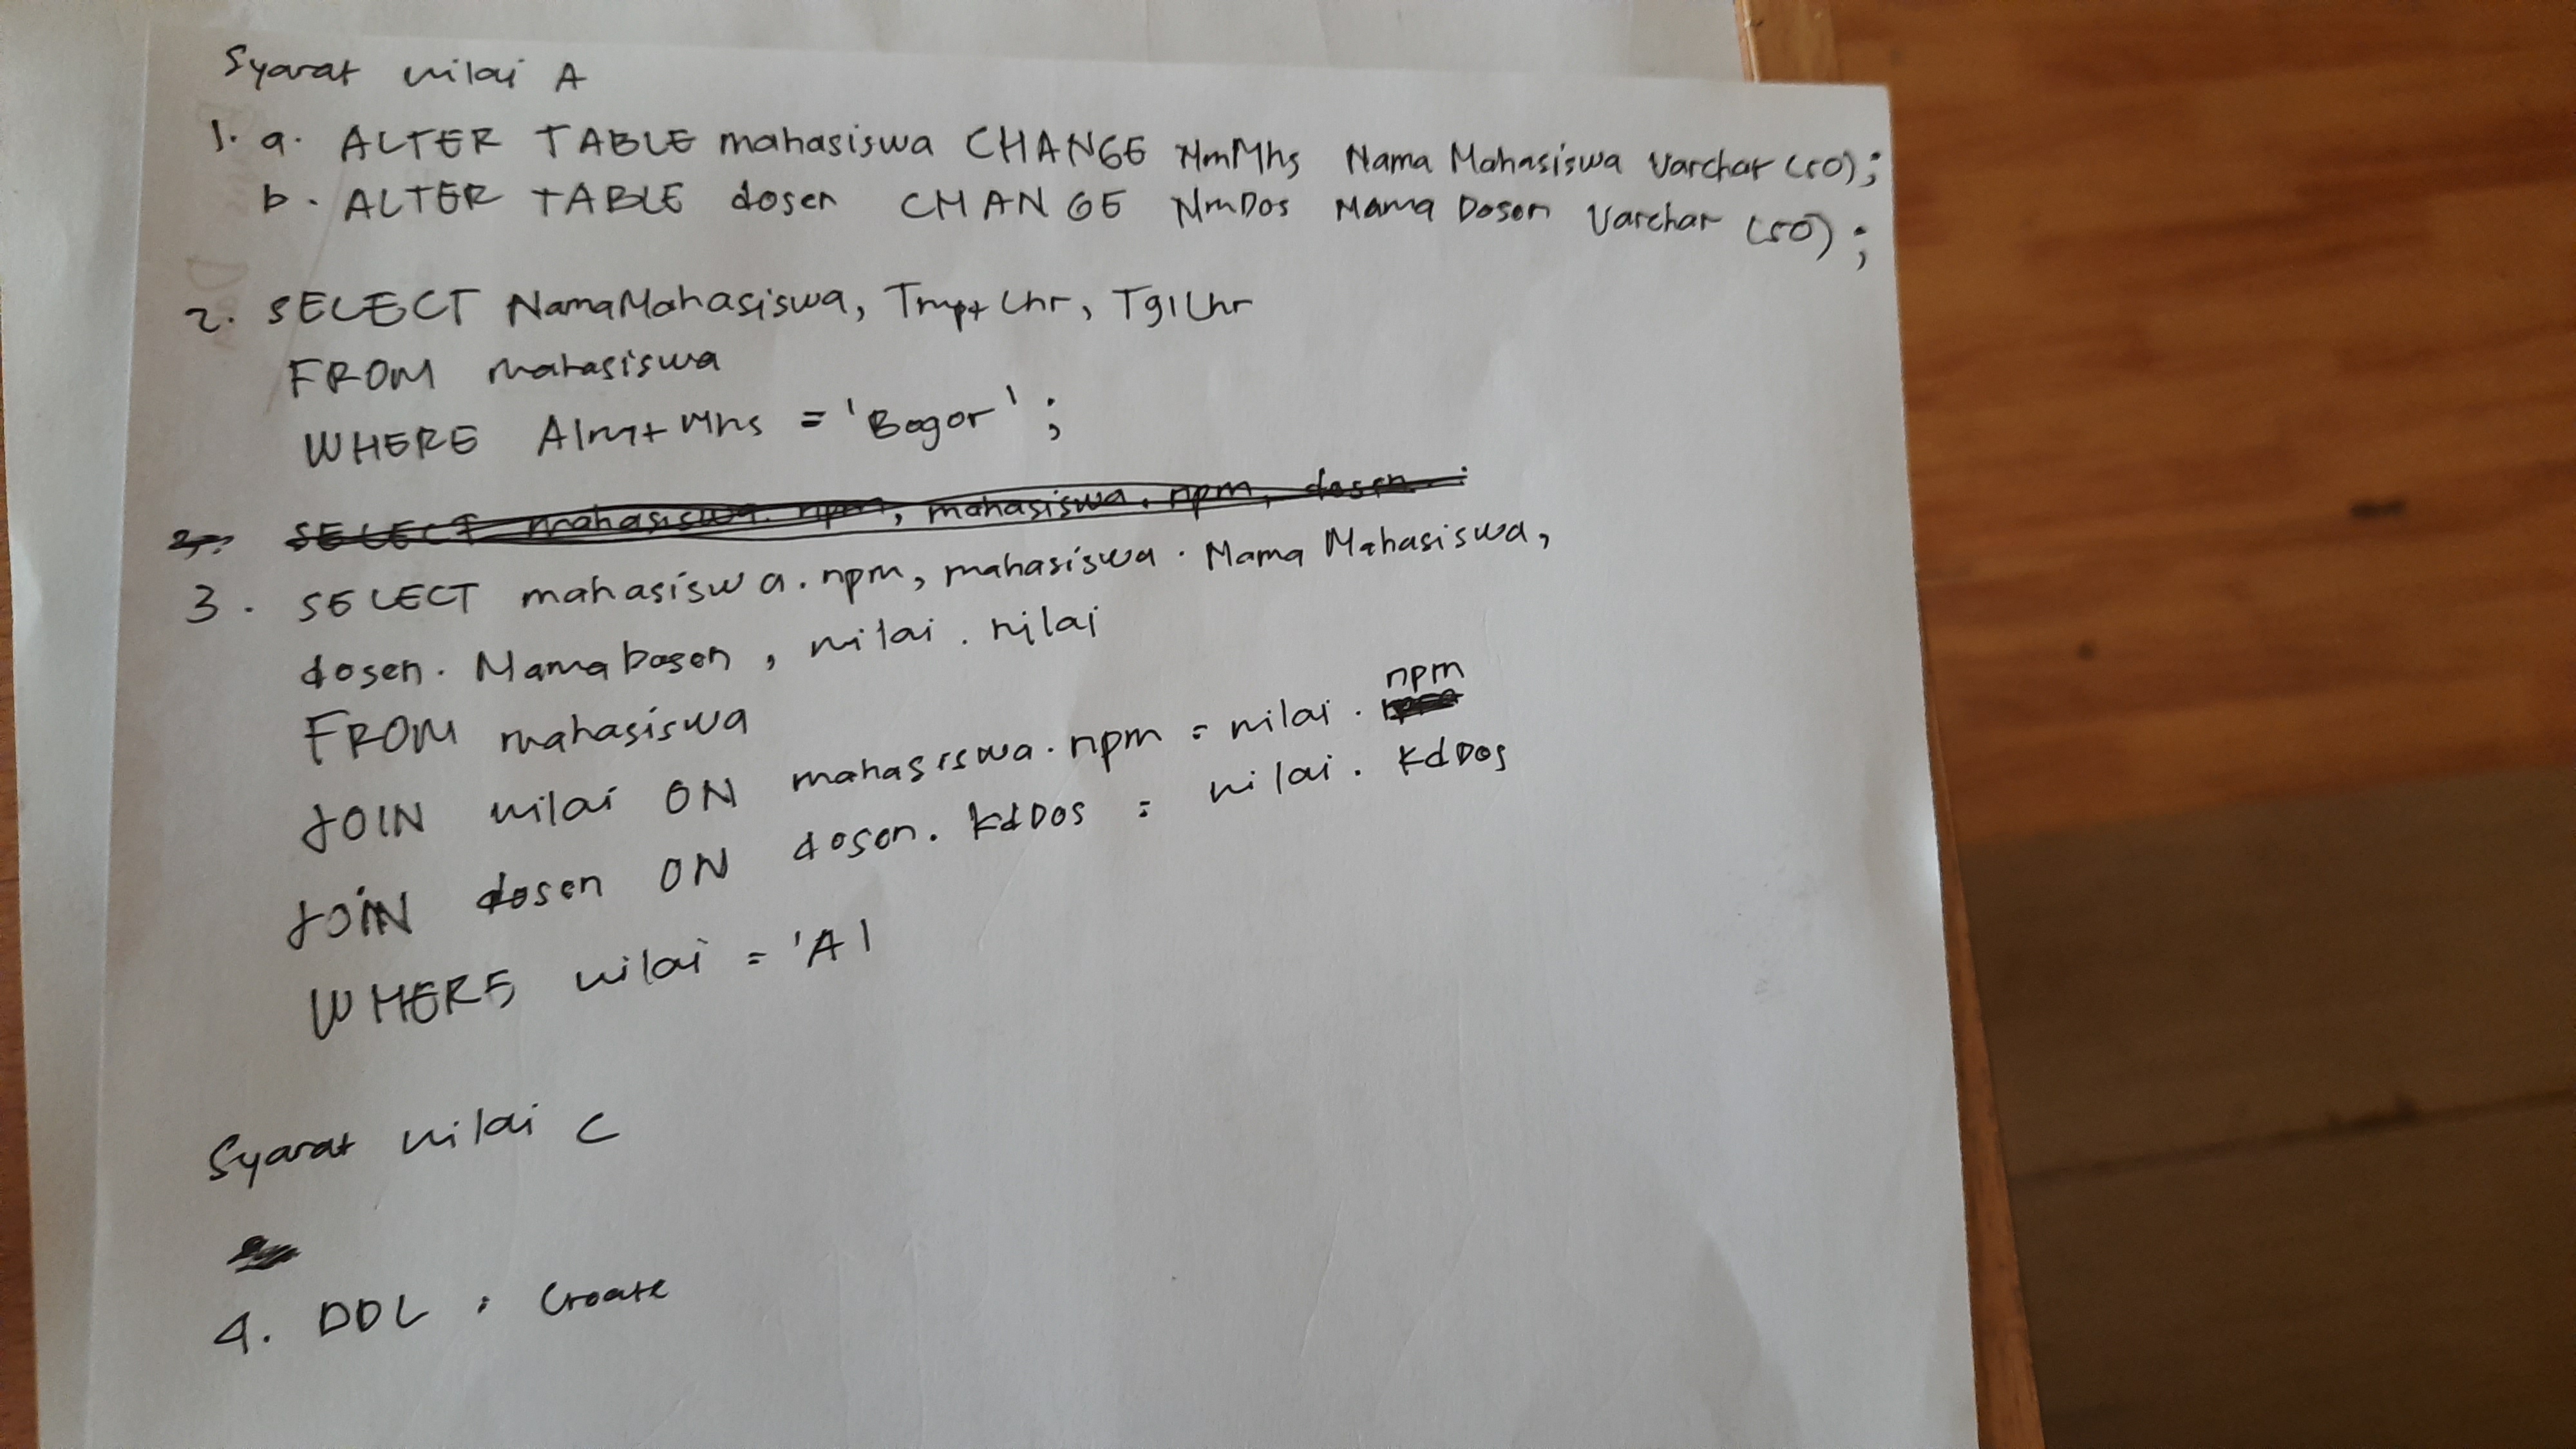 Syarat nilai A
1. a. ALTER TABLE mahasiswa CHANGE NmMhs NamaMahasiswa varchar (50);
b. ALTER TABLE dosen CHANGE NmDos NamaDosen Varchar (50);
2. SELECT NamaMahasiswa, TmptLhr, TglLhr
FROM mahasiswa
WHERE AlmtMhs = 'Bogor';
SELECT mahasiswa.npm, mahasiswa.npm, dosen
3. SELECT mahasiswa.npm, mahasiswa.NamaMahasiswa,
dosen.NamaDosen, nilai.nilai
FROM mahasiswa
JOIN nilai ON mahasiswa.npm = nilai.npm
JOIN dosen ON dosen.kdDos = nilai.kdDos
WHERE nilai = 'A'
Syarat nilai C
4. DDL : Create